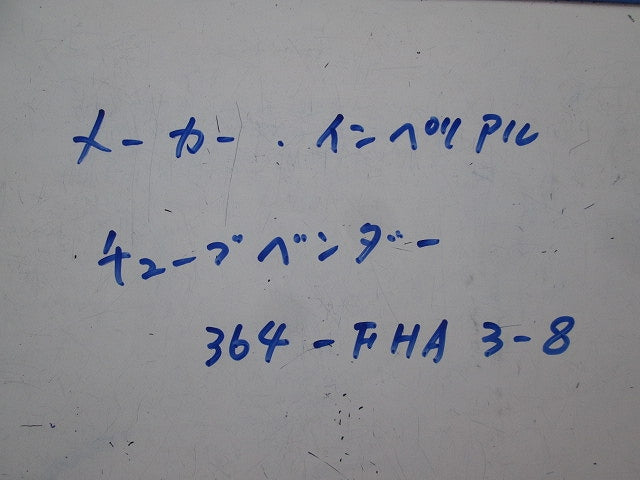 メーカー・インペリアル
チューブベンダー
364-FHA 3-8